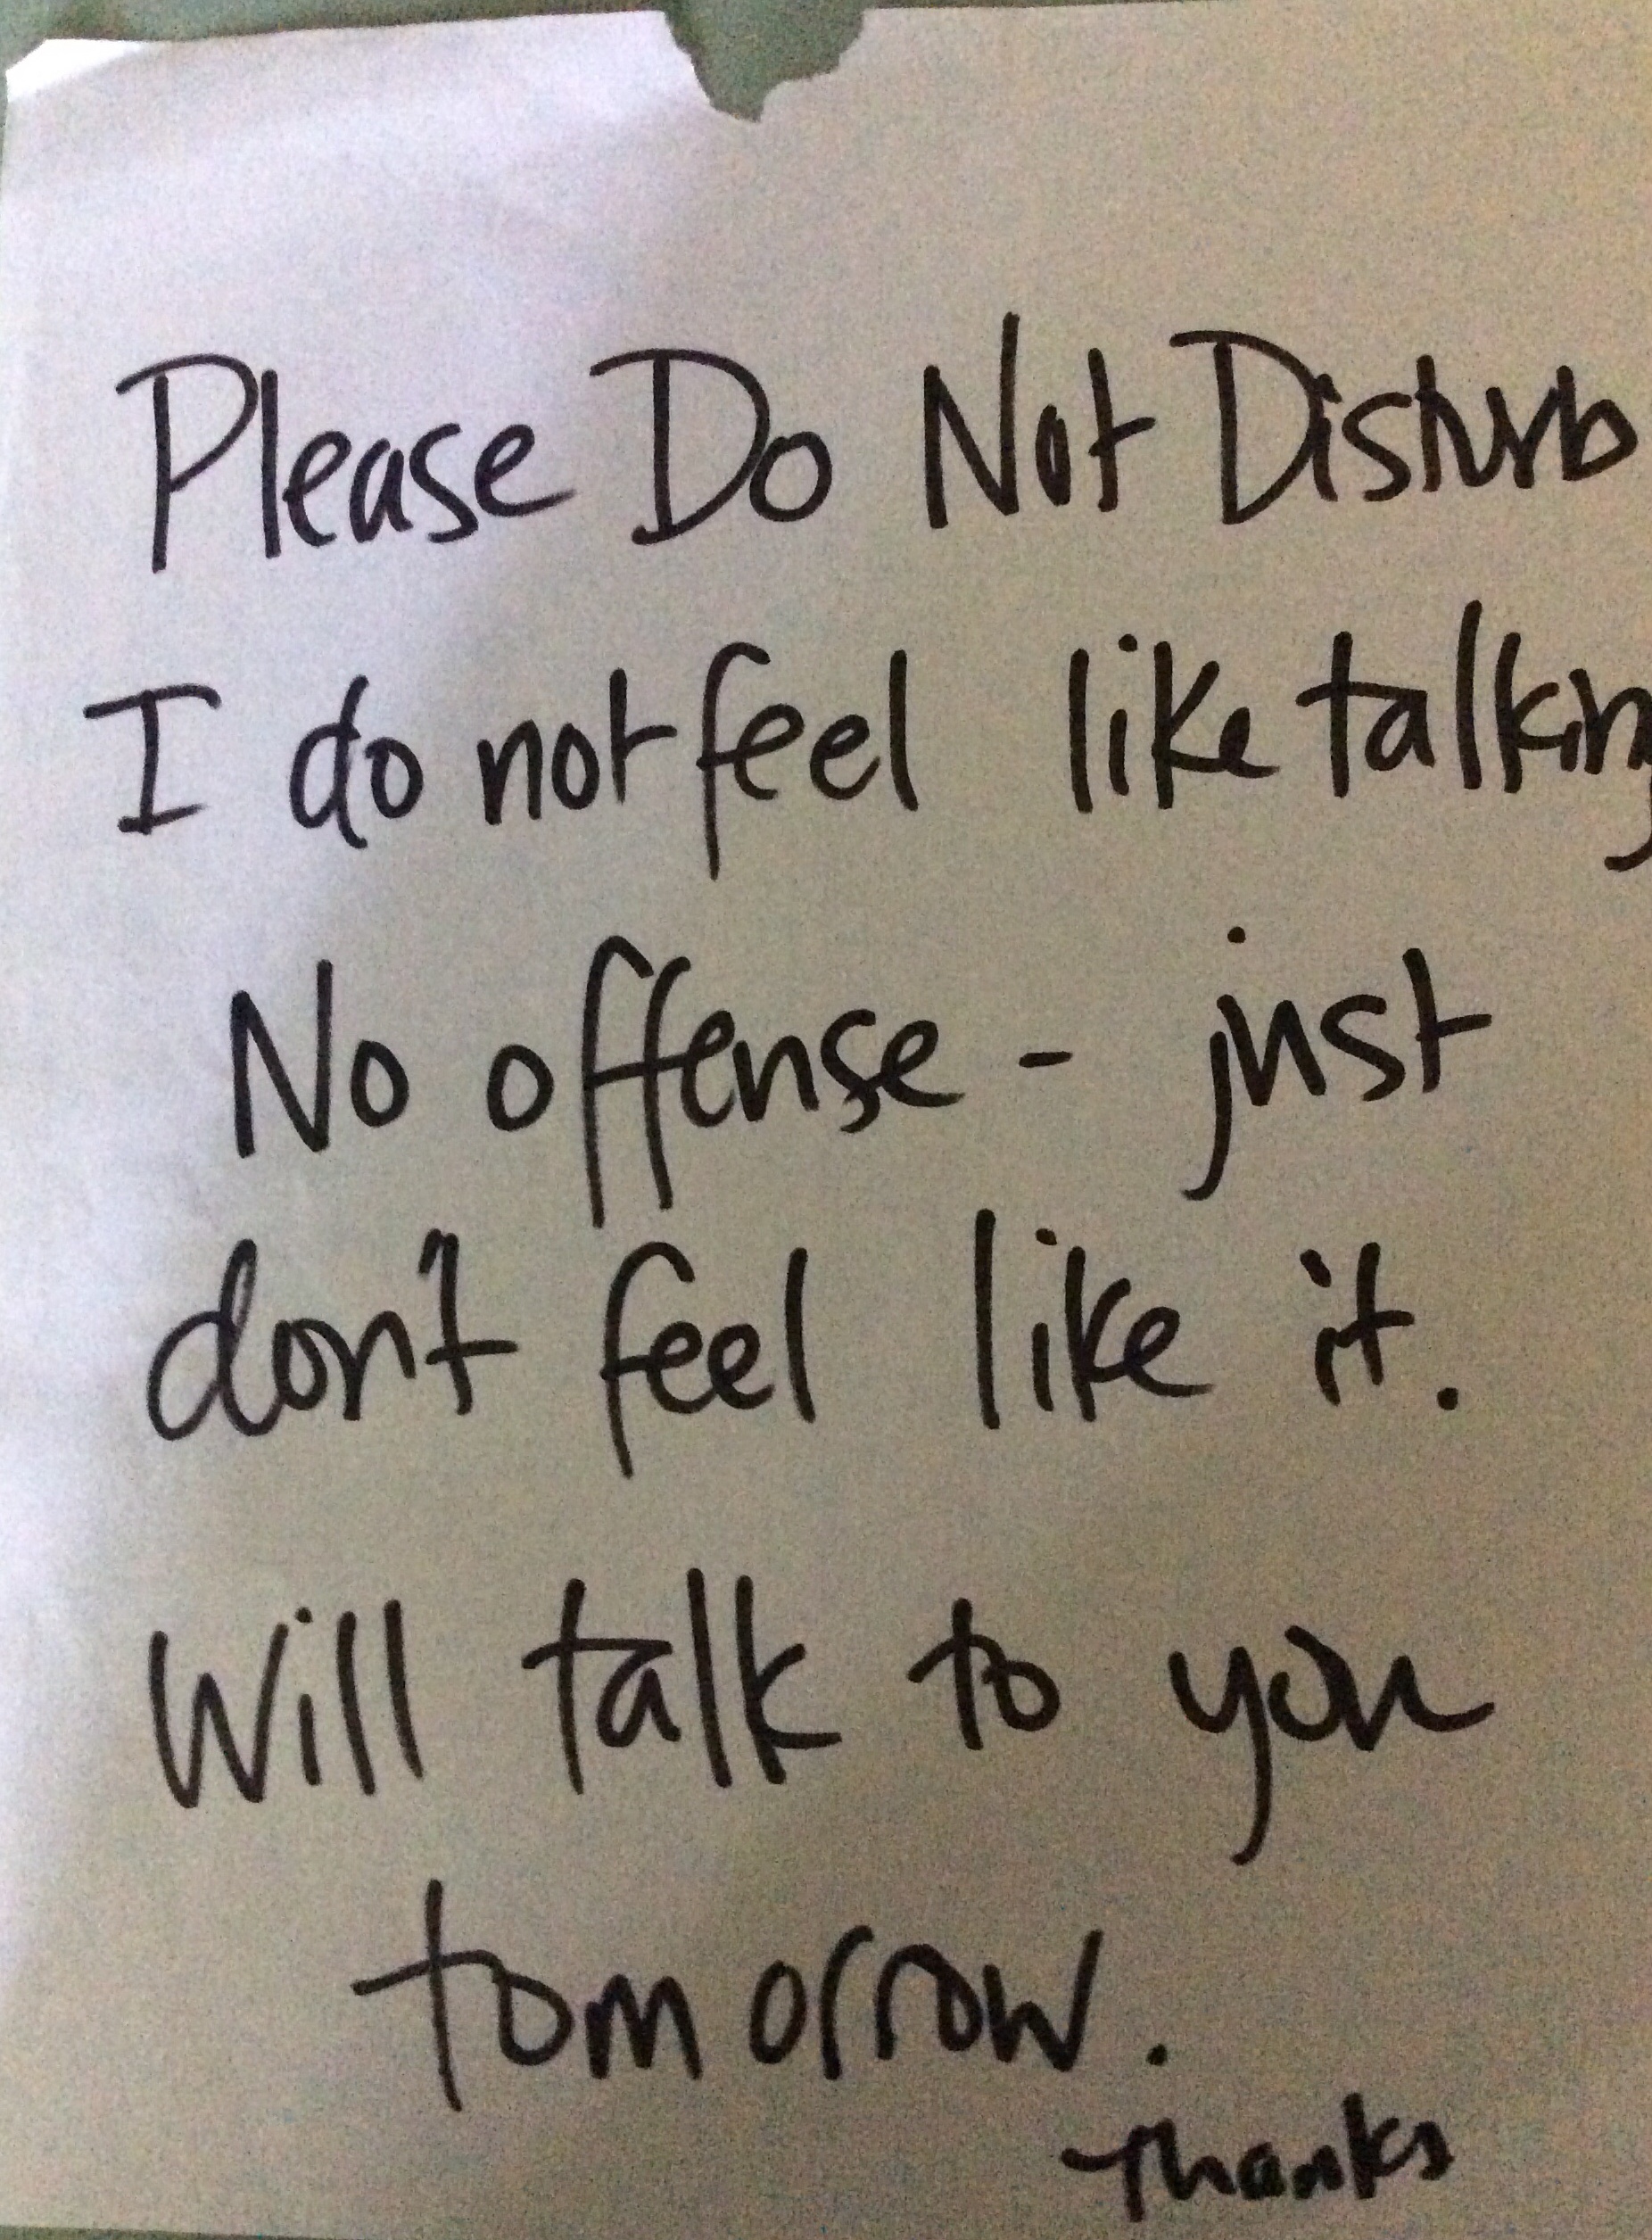 Please Do Not Disturb
I do not feel like talking
No offense - just
don't feel like it.
Will talk to you
tomorrow.
Thanks